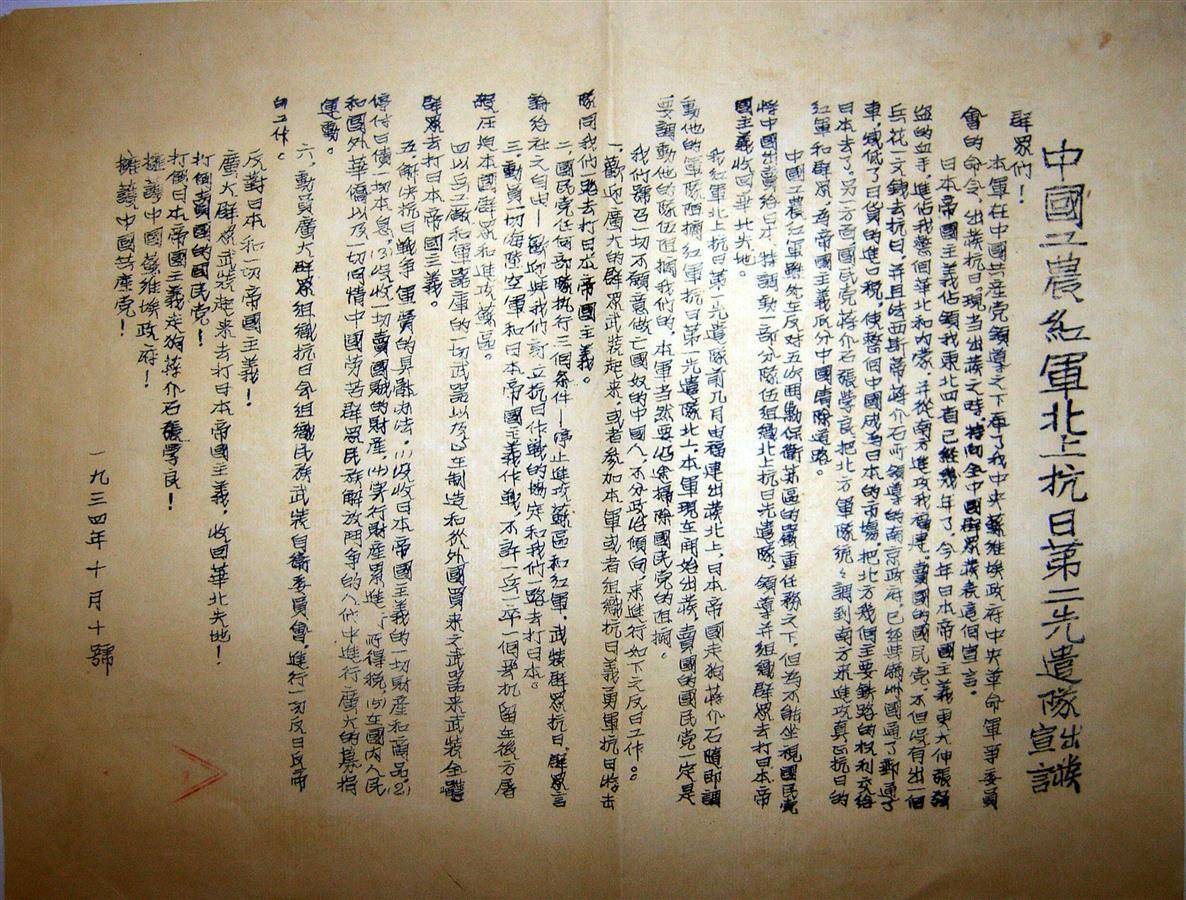 中國工農紅軍北上抗日第二先遣隊出發宣言
群眾們！
本軍在中國共产党領導之下奉了我中央蘇維埃政府中央革命軍事委員
會的命令，出發抗日。現当出發之時，特向全中國群眾發表這個宣言。
日本帝國主義佔領我東北四省已經幾年了，今年日本帝國主義更大伸張強
盜的血手，進佔我整個華北和內蒙，并從南方進攻我福建。賣國的國民党，不但沒有出一個
兵花一文錢去抗日，并且法西斯蒂蔣介石所領導的南京政府，已經與滿洲國通了郵通了
車，减低了日貨的進口稅，使整個中國成為日本的市場，把北方幾個主要鉄路的权利交給
日本去了。另一方面國民党蔣介石張学良把北方軍隊統統調到南方來進攻真正抗日的
紅軍和群眾，為帝國主義瓜分中國清除道路。
中國工農紅軍雖然在反对五次囲剿保衛苏區的嚴重任務之下，但為不能坐視國民党
將中國出賣給日本，特調動一部分隊伍組織北上抗日先遣隊，領導并組織群眾去打日本帝
國主義收回華北失地。
我紅軍北上抗日第一先遣隊前几月由福建出發北上，日本帝國走狗蔣介石隨即調
動他的軍隊阻攔紅軍抗日第一先遣隊北上，本軍現在開始出發，賣國的國民党一定是
要調動他的隊伍阻攔我們的，本軍当然要以全力掃除國民党的阻攔。
我們號召一切不願意做亡國奴的中國人，不分政治傾向，來進行如下之反日工作：
一、歡迎廣大的群眾武裝起來，或者參加本軍，或者組織抗日義勇軍抗日游击
隊同我們一起去打日本帝國主義。
二、國民党任何部隊执行三個条件——停止進攻蘇區和紅軍，武裝群眾抗日，群眾言
論結社之自由——歡迎與我們訂立抗日作戰的協定和我們一路去打日本。
三、動員一切海陸空軍和日本帝國主義作戰，不許一兵一卒一個飞机留在後方屠
殺压迫本國群眾和進攻蘇區。
四、以兵工廠和軍器庫的一切武器以及正在制造和從外國買來之武器來武裝全體
群眾去打日本帝國主義。
五、解决抗日戰争軍費的具體办法，(1)沒收日本帝國主義的一切財產和商品，(2)
停付日債一切本息，(3)沒收一切賣國賊的財產，(4)实行財產累進所得稅，(5)在國內人民
和國外華僑以及一切同情中國劳苦群眾民族解放鬥争的人們中進行廣大的募捐
運動。
六、動員廣大群眾組織抗日会組織民族武裝自衛委員會，進行一切反日反帝
的工作。
反對日本和一切帝國主義！
廣大群眾武裝起來去打日本帝國主義，收回華北失地！
打倒賣國的國民党！
打倒日本帝國主義走狗蔣介石張學良！
擁護中國蘇維埃政府！
擁護中國共產党！
一九三四年十月十號